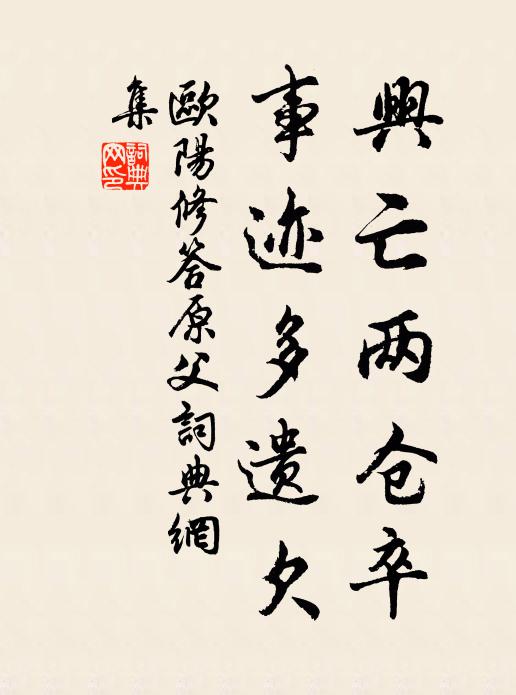 興亡两仓卒
事迹多遗欠
歐陽修答原父詞典網
集
詞典網印